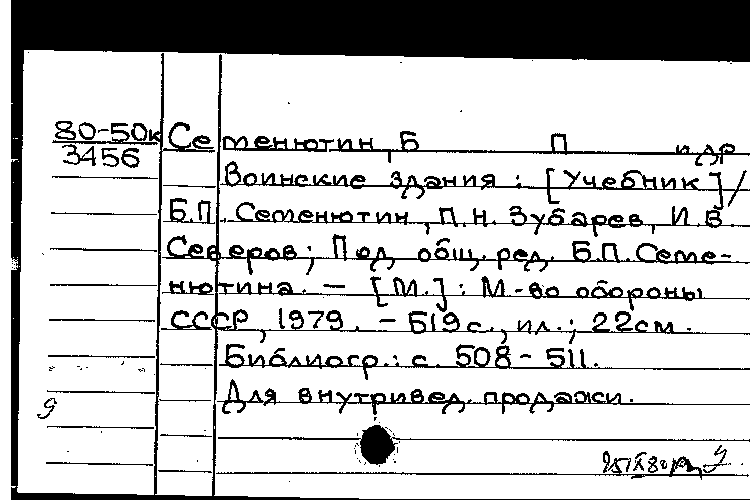 80-50к Семенютин, Б П и др
3456
Воинские здания : [Учебник] /
Б.П. Семенютин, П.Н. Зубарев, И.В
Северов; Под общ. ред. Б.П. Семе-
нютина. — [М.] : М-во обороны
СССР, 1979. - 519 с., ил.; 22см.
Библиогр.: с. 508 - 511.
Для внутривед. продажи.
9